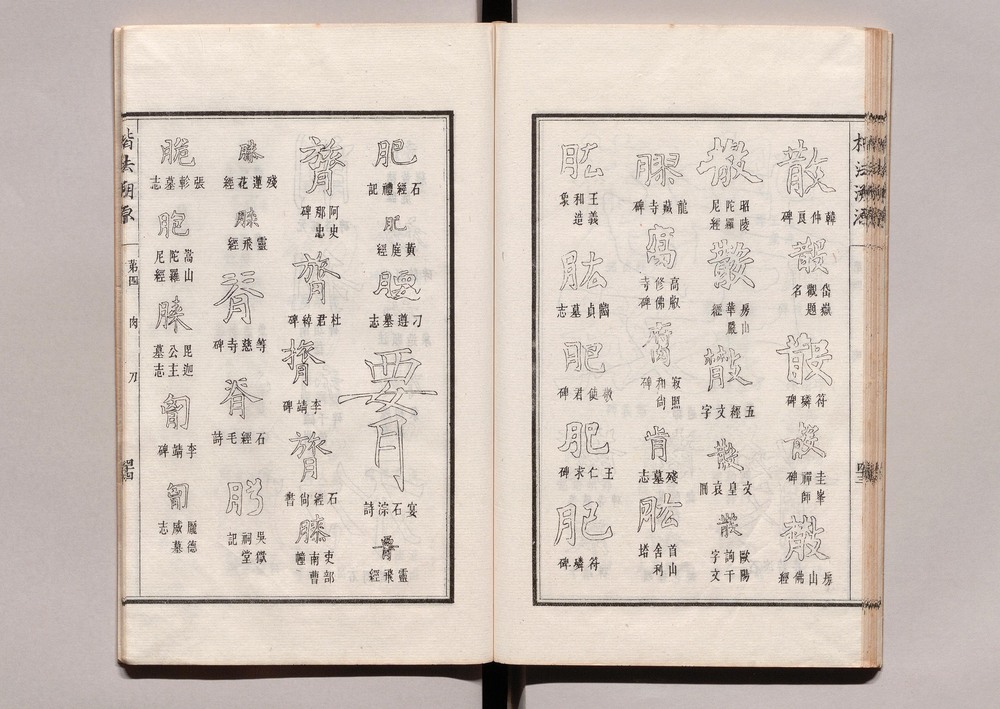 散
韓仲良碑
散
岱嶽觀題名
散
符璘碑
散
圭峯禪師碑
散
房山佛經
散
昭陵陀羅尼經
散
房山華嚴經
散
五經文字
散
文皇哀冊
散
歐陽詢千字文
膠
龍藏寺碑
脣
高叡修佛寺碑
腐
寂照和尙碑
肯
殘墓志
肱
首山舍利塔
肱
王義和造象
肱
貞墓志
肥
敬使君碑
肥
王仁求碑
肥
符璘碑
肥
石經禮記
肥
黃庭經
腰
刁遵墓志
䙅
宴石淙詩
膂
靈飛經
膂
阿史那忠碑
膂
杜君綽碑
膂
李靖碑
膂
石經尙書
膝
吏部南曹幢
膝
殘蓮花經
膝
靈飛經
脊
等慈寺碑
脊
石經毛詩
胯
吳嶽祠堂記
脆
張軫墓志
胞
嵩山陀羅尼經
膝
毘迦公主墓志
芻
李靖碑
芻
龐德威墓志
楷法溯源
第四
肉
刀